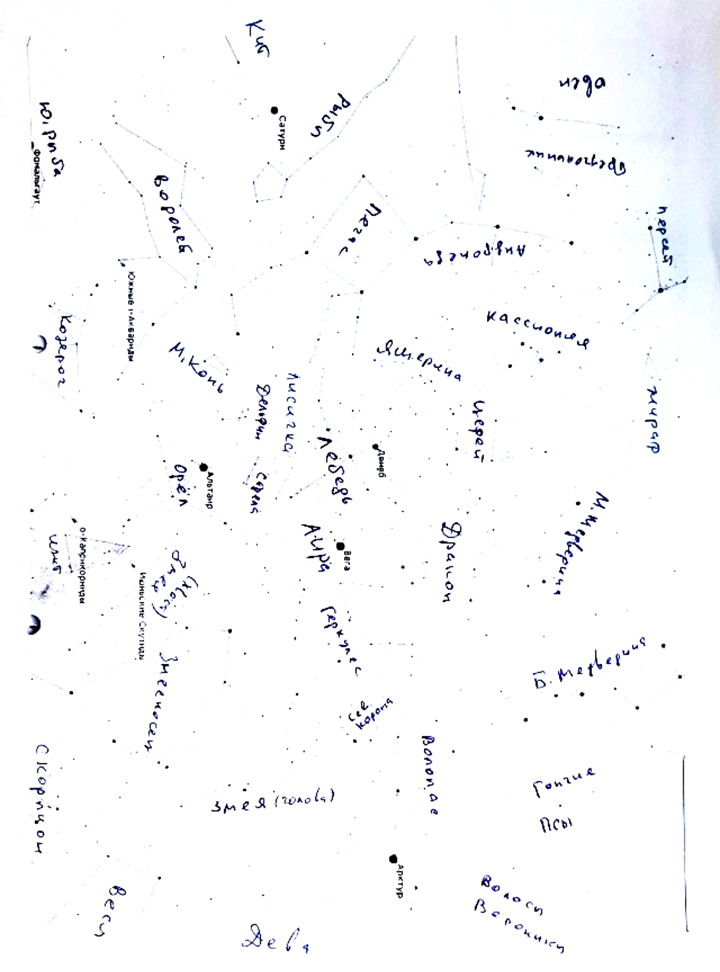 Кит
Овен
Рыбы
Сатурн
Треугольник
Ю. Рыба
Фомальгаут
Водолей
Пегас
Андромеда
Персей
Южные ι-Аквариды
Козерог
М. Конь
Кассиопея
Ящерица
Жираф
Дельфин
Лисичка
Цефей
Лебедь
Денеб
Орёл
Альтаир
Стрела
М. Медведица
Щит
α-Каприкорниды
Лира
Вега
Дракон
Змея
(хвост)
Июньские Скутиды
Геркулес
Змееносец
Б. Медведица
Сев
корона
Волопас
Скорпион
Змея (голова)
Гончие
Псы
Арктур
Весы
Волосы
Вероники
Дева